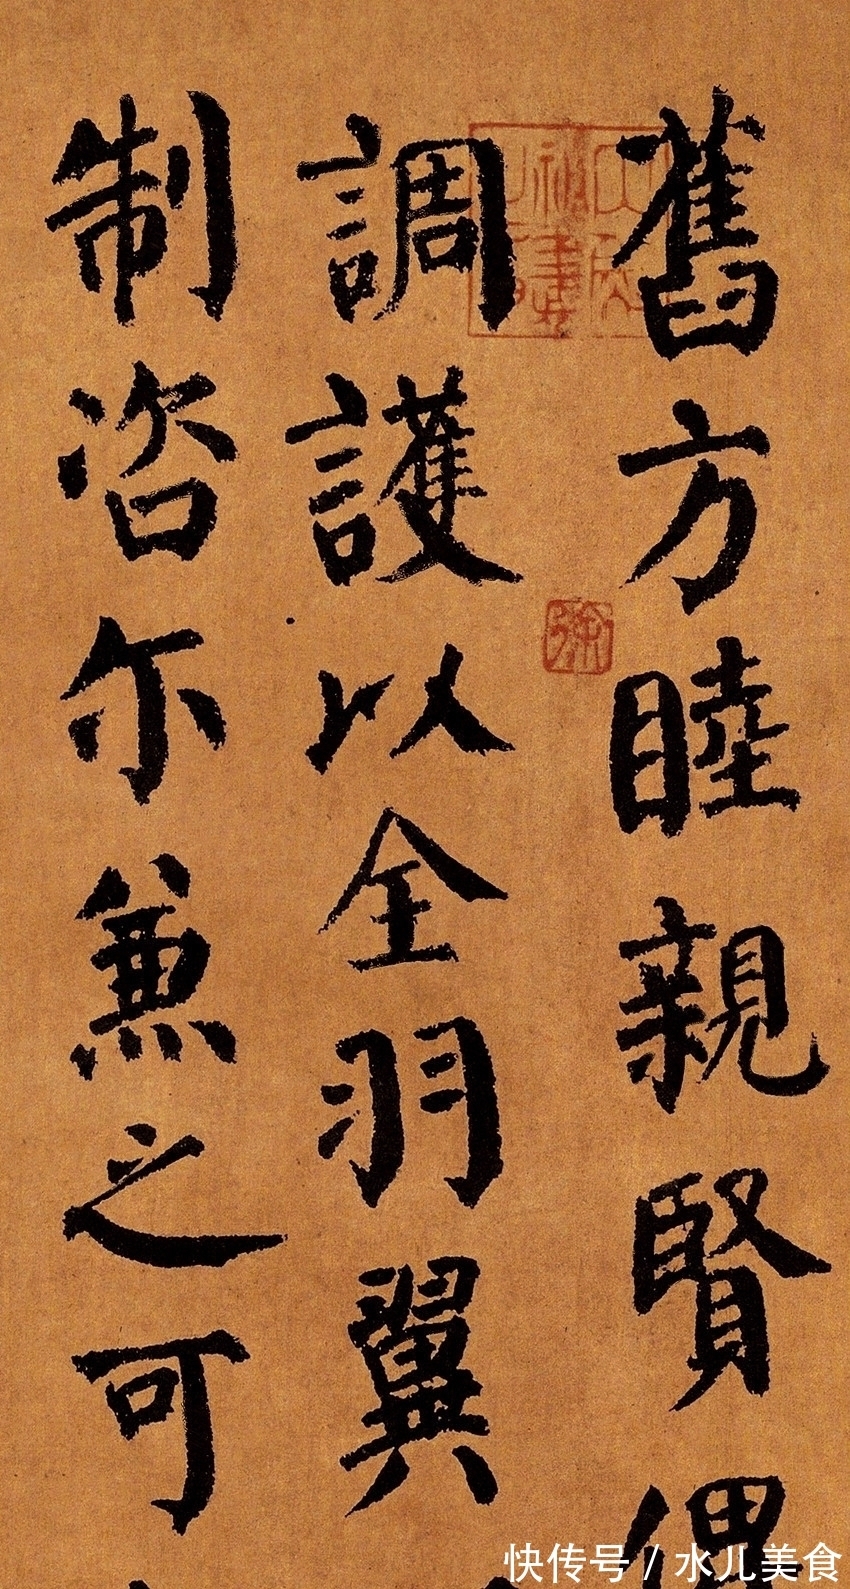 舊方睦親賢俾
調護以全羽翼
制咨尓兼之可
快传号 / 水儿美食